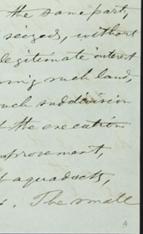 the same part,
seized, without
legitimate interest
such land,
such subdivision
the execution
improvement,
aqueducts,
The small